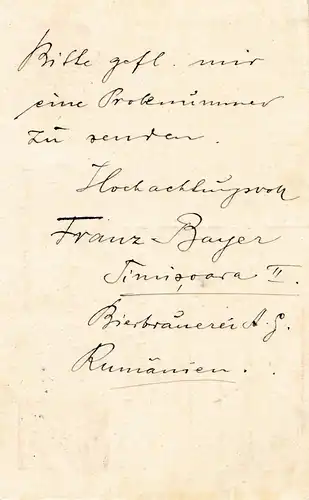 Bitte gefl. mir
eine Probenummer
zu senden.
Hochachtungsvoll
Franz Bayer
Timișoara II.
Bierbrauerei A. G.
Rumänien.